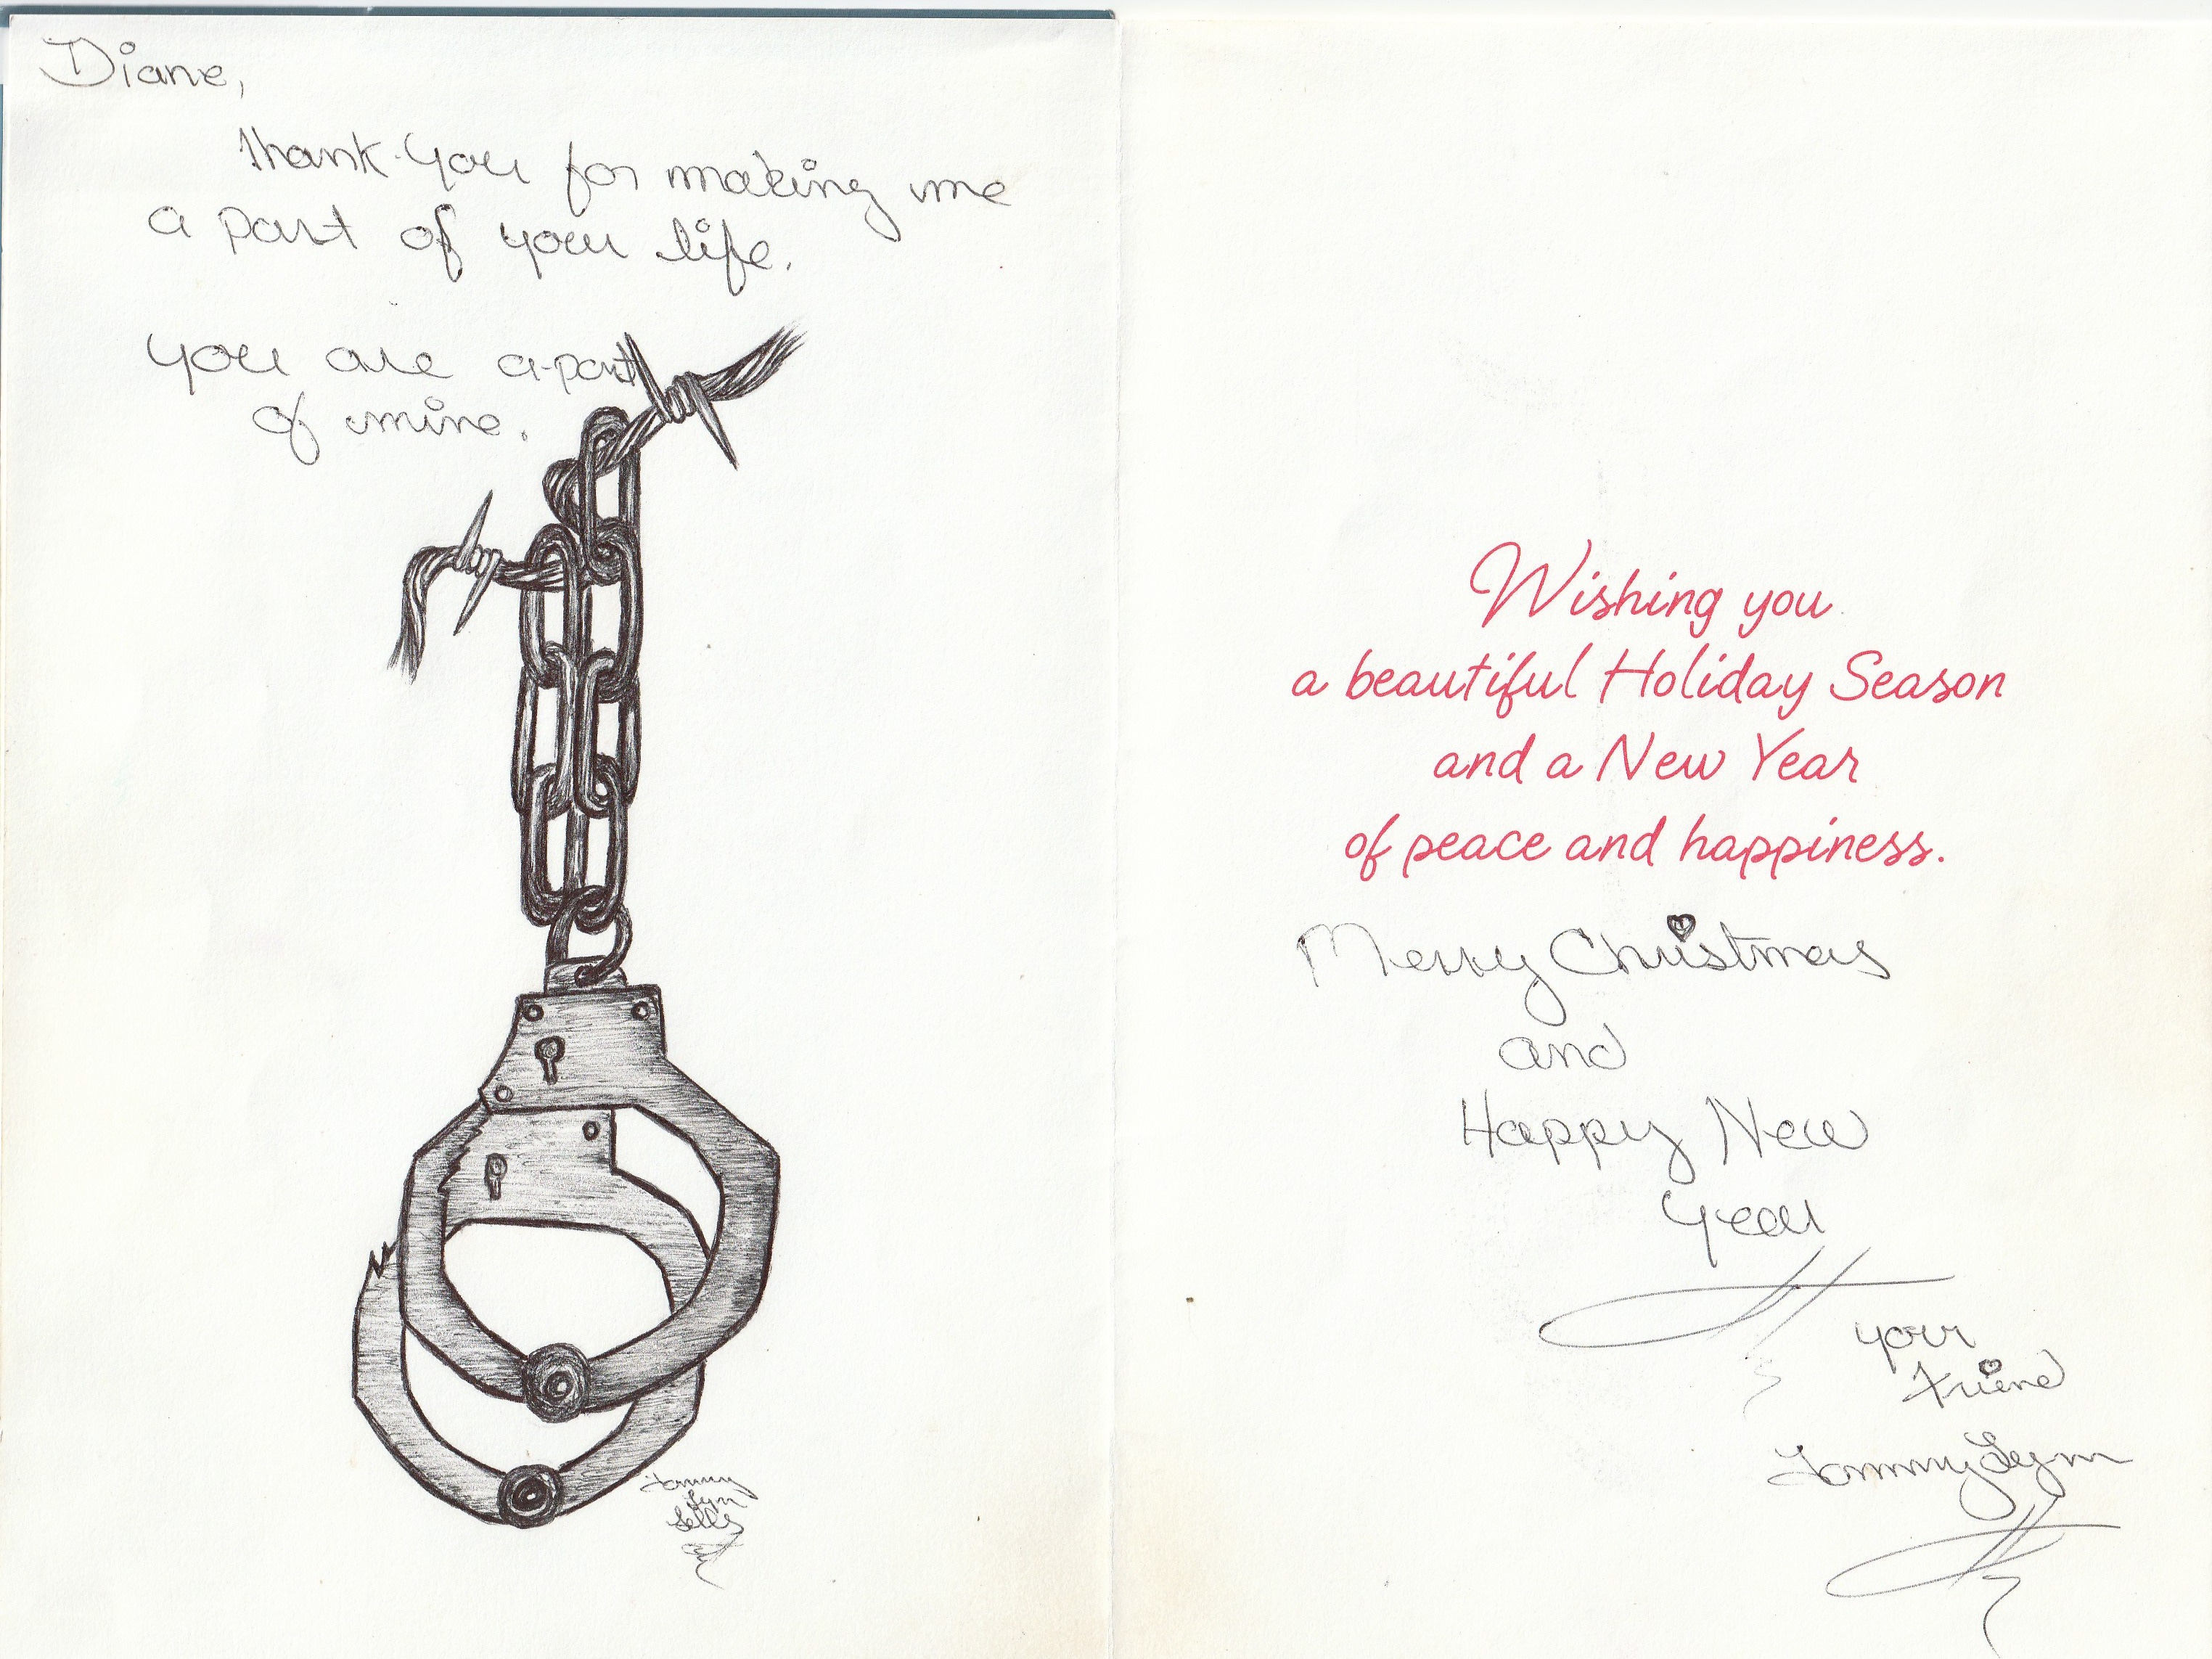 Diane,
thank-you for making me
a part of your life.
you are a-part
of mine.
Tommy
Lynn
Sells
Wishing you
a beautiful Holiday Season
and a New Year
of peace and happiness.
Merry Christmas
and
Happy New
Year
your
friend
Tommy Lynn